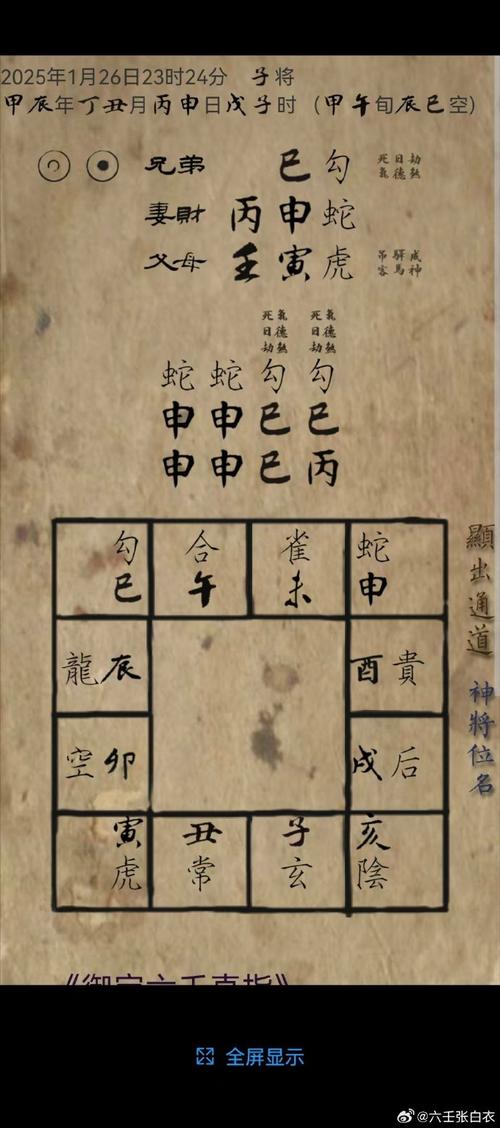 2025年1月26日23时24分 子将
甲辰年丁丑月丙申日戊子时（甲午旬辰巳空）
兄弟 巳 勾 死氣 日德 劫煞
妻財 丙 申 蛇
父母 壬 寅 虎 吊客 驛馬 成神
死氣 死氣
日德 日德
劫煞 劫煞
蛇 蛇 勾 勾
申 申 巳 巳
申 申 巳 丙
勾 合 雀 蛇
巳 午 未 申
龍 辰 酉 貴
空 卯 戌 后
寅 丑 子 亥
虎 常 玄 陰
顯出通道
神將位名
《御定六壬直指》
全屏显示
@六壬张白衣